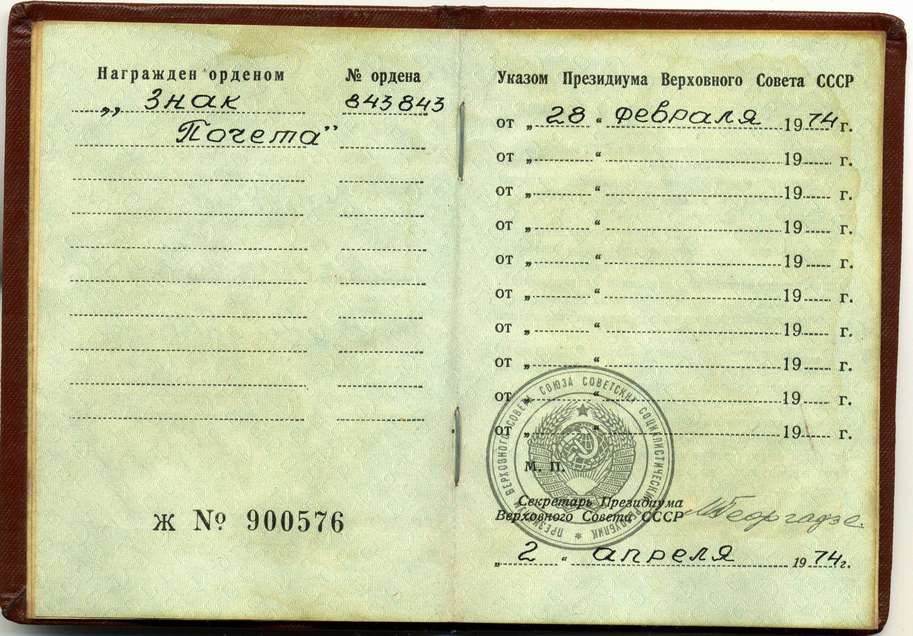 Награжден орденом № ордена
„Знак 843843
Почета”
Ж № 900576
Указом Президиума Верховного Совета СССР
от „ 28 “ февраля 1974 г.
от „ “ 19 г.
от „ “ 19 г.
от „ “ 19 г.
от „ “ 19 г.
от „ “ 19 г.
от „ “ 19 г.
от „ “ 19 г.
от „ “ 19 г.
от „ “ 19 г.
ПРЕЗИДИУМ ВЕРХОВНОГО СОВЕТА СОЮЗА СОВЕТСКИХ СОЦИАЛИСТИЧЕСКИХ РЕСПУБЛИК
М. П.
Секретарь Президиума
Верховного Совета СССР МГеоргадзе
„ 2 “ апреля 1974 г.